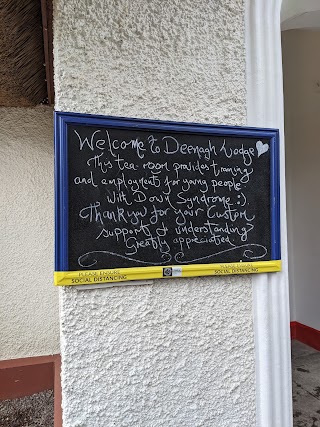 Welcome to Deenagh Lodge
This tea-room provides training
and employment for young people
with Down Syndrome :)
Thank you for your Custom
support & understanding
Greatly appreciated.
PLEASE ENSURE
SOCIAL DISTANCING
PLEASE ENSURE
SOCIAL DISTANCING